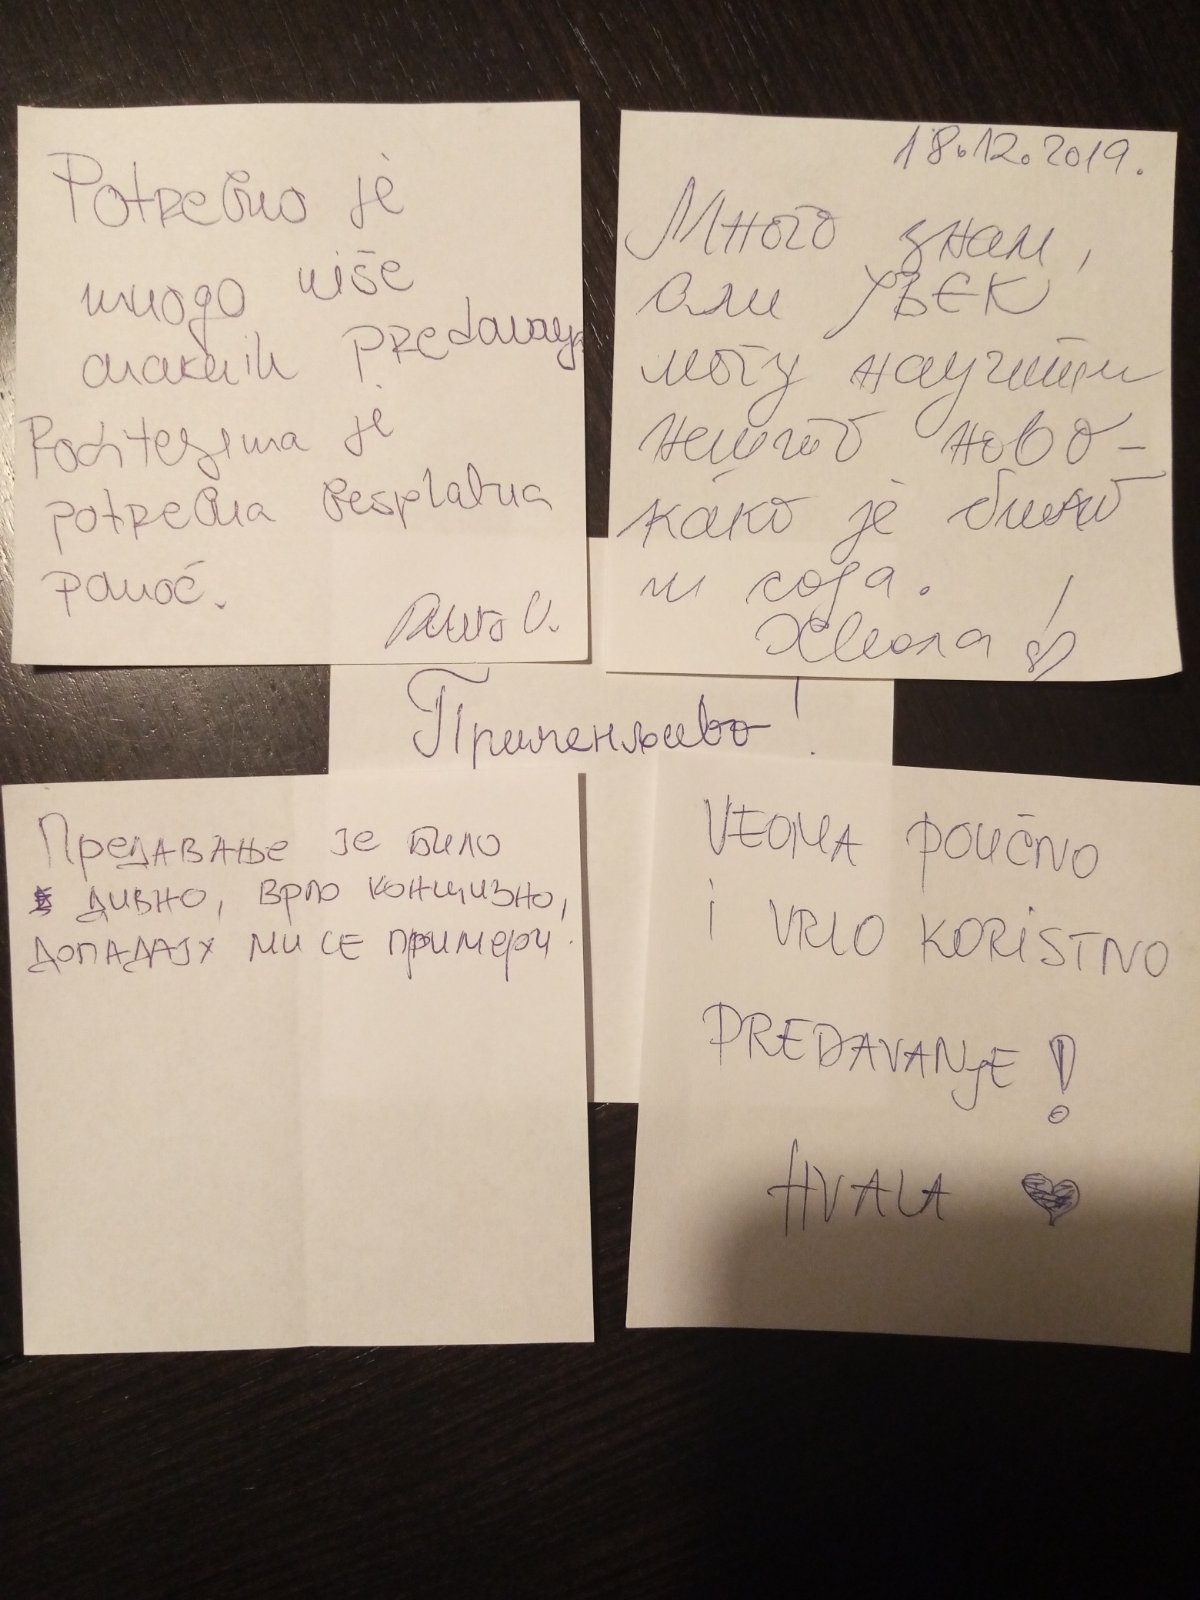 Potrebno je
mnogo više
ovakvih predavanja
Roditeljima je
potrebna besplatna
pomoć.
18.12.2019.
Много знам,
али увек
могу научити
нешто ново-
како је битно
и сода.
Хвала !
Примењиво!
Предавање је било
дивно, врло концизно,
допадају ми се примери.
VEOMA POUČNO
I VRLO KORISTNO
PREDAVANJE!
HVALA